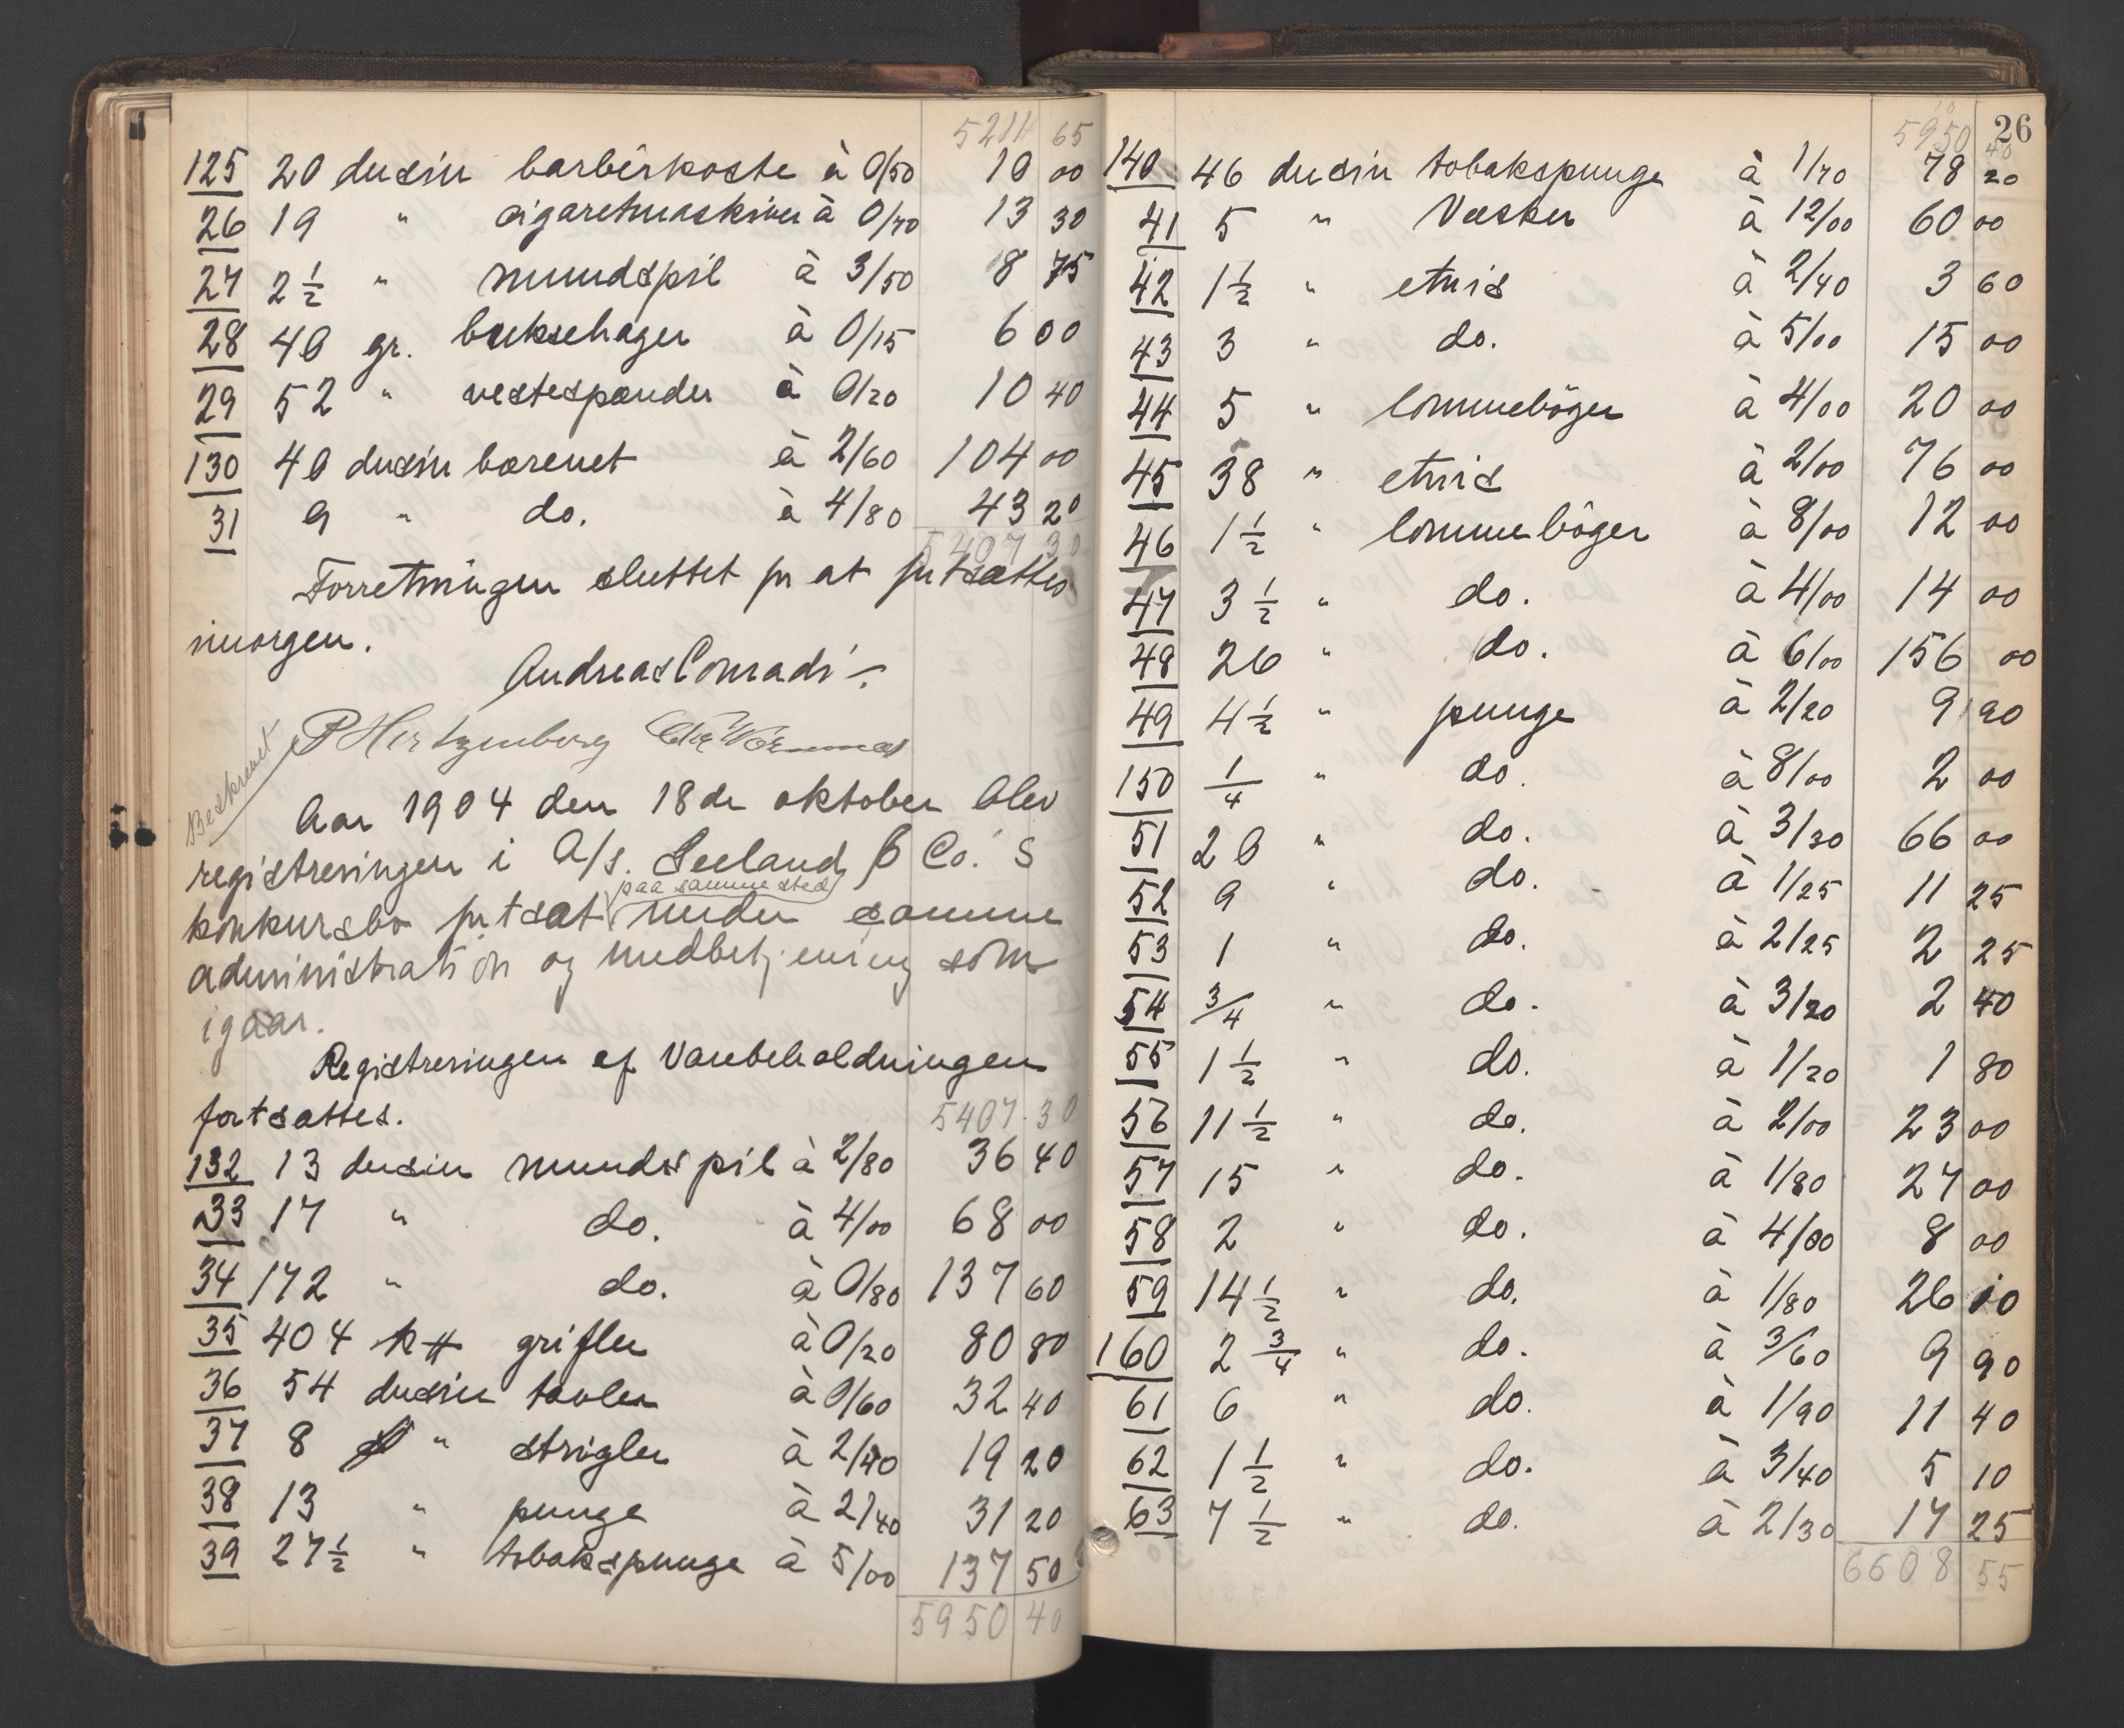 5211 65
125 20 dusin barbérkoste à 0/50 10 00
26 19 " cigaretmaskiner à 0/70 13 30
27 2 1/2 " mundspil à 3/50 8 75
28 40 gr. buksehager à 0/15 6 00
29 52 " vestespænder à 0/20 10 40
130 40 dusin barenet à 2/60 104 00
31 9 " do. à 4/80 43 20
5407 30
Forretningen sluttet for at fortsættes
imorgen.
Andreas Conradi
P Hertzenberg
Beskrevet
Aar 1904 den 18de oktober blev
registreringen i A/S. Seeland & Co.'s
paa samme sted
konkursbo fortsat under samme
administration og medbetjening som
igaar.
Registreringen af Varebeholdningen
fortsattes.
5407.30
132 13 dusin mundspil à 2/80 36 40
33 17 " do. à 4/00 68 00
34 172 " do. à 0/80 137 60
35 404 grifler à 0/20 80 80
36 54 dusin tavler à 0/60 32 40
37 8 " strigler à 2/40 19 20
38 13 " punge à 2/40 31 20
39 27 1/2 " tobakspunge à 5/00 137 50
5950 40
26
5950 40
140 46 dusin tobakspunge à 1/70 78 20
41 5 " Væsker à 12/00 60 00
42 1 1/2 " etuis à 2/40 3 60
43 3 " do. à 5/00 15 00
44 5 " lommebøger à 4/00 20 00
45 38 " etuis à 2/00 76 00
46 1 1/2 " lommebøger à 8/00 12 00
47 3 1/2 " do. à 4/00 14 00
48 26 " do. à 6/00 156 00
49 4 1/2 " punge à 2/20 9 90
150 1/4 " do. à 8/00 2 00
51 20 " do. à 3/30 66 00
52 9 " do. à 1/25 11 25
53 1 " do. à 2/25 2 25
54 3/4 " do. à 3/20 2 40
55 1 1/2 " do. à 1/20 1 80
56 11 1/2 " do. à 2/00 23 00
57 15 " do. à 1/80 27 00
58 2 " do. à 4/00 8 00
59 14 1/2 " do. à 1/80 26 10
160 2 3/4 " do. à 3/60 9 90
61 6 " do. à 1/90 11 40
62 1 1/2 " do. à 3/40 5 10
63 7 1/2 " do. à 2/30 17 25
6608 55